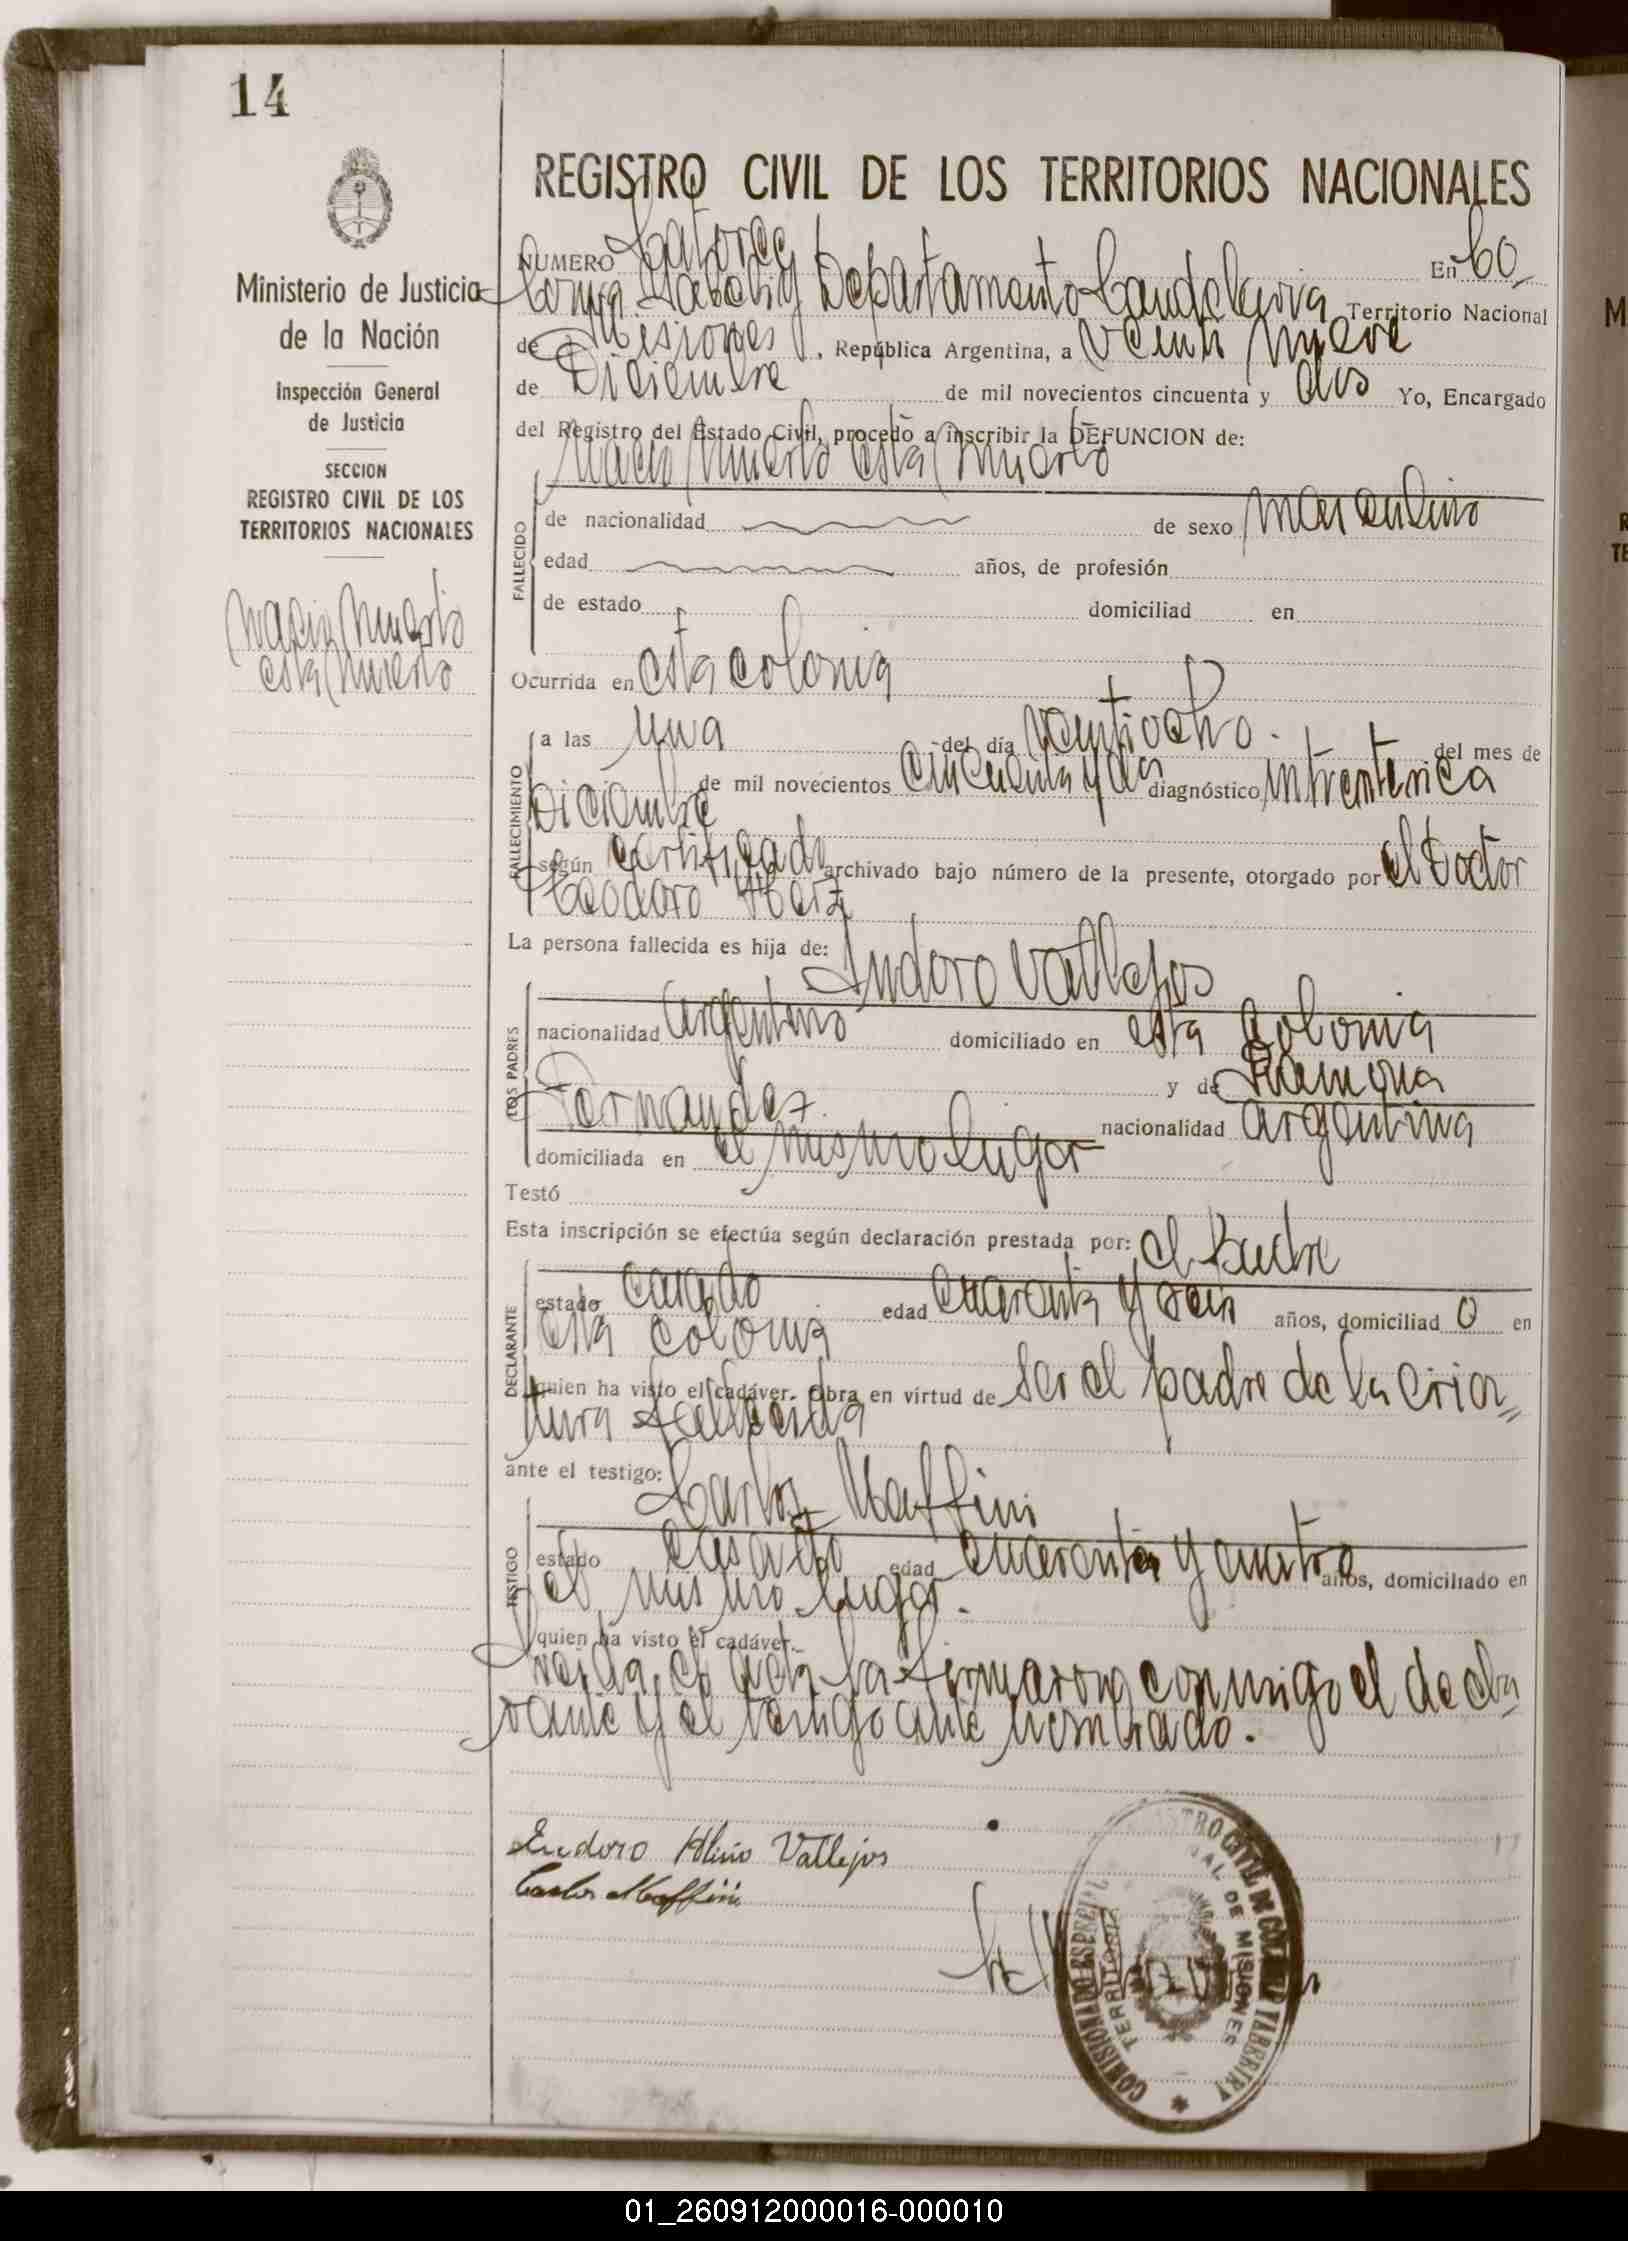 14
REGISTRO CIVIL DE LOS TERRITORIOS NACIONALES
Ministerio de Justicia
de la Nación
Inspección General
de Justicia
SECCION
REGISTRO CIVIL DE LOS
TERRITORIOS NACIONALES
Nacio Muerto
esta Muerto
NUMERO Catorce En Co
lonia Departamento Candelaria Territorio Nacional
de Misiones, República Argentina, a Veinti nueve
de Diciembre de mil novecientos cincuenta y dos Yo, Encargado
del Registro del Estado Civil, procedo a inscribir la DEFUNCION de:
Nacio Muerto esta Muerto
FALLECIDO
de nacionalidad de sexo masculino
edad años, de profesión
de estado domiciliad en
Ocurrida en esta colonia
FALLECIMIENTO
a las una del día ventiocho. del mes de
Diciembre de mil novecientos cincuenta y dos diagnóstico
según certificado archivado bajo número de la presente, otorgado por el Doctor
Teodoro
La persona fallecida es hija de: Eudoro Vallejos
LOS PADRES
nacionalidad argentino domiciliado en esta colonia
y de Ramona
Fernandez. nacionalidad argentina
domiciliada en el mismo lugar
Testó
Esta inscripción se efectúa según declaración prestada por: el Padre
DECLARANTE
estado casado edad cuarenta y seis años, domiciliad o en
esta colonia
quien ha visto el cadáver. Obra en virtud de ser el padre de la cria=
tura fallecida
ante el testigo: Carlos Maffini
TESTIGO
estado casado edad cuarenta y cuatro años, domiciliado en
el mismo lugar.
quien ha visto el cadáver.
Leida el acta la firmaron conmigo el decla
rante y el testigo ante nombrado.
Eudoro Vallejos
Carlos Maffini
REGISTRO CIVIL DE COLONIA YABEBIRY
COMISIONADO ESPECIAL
TERRITORIO NACIONAL DE MISIONES
01_260912000016-000010